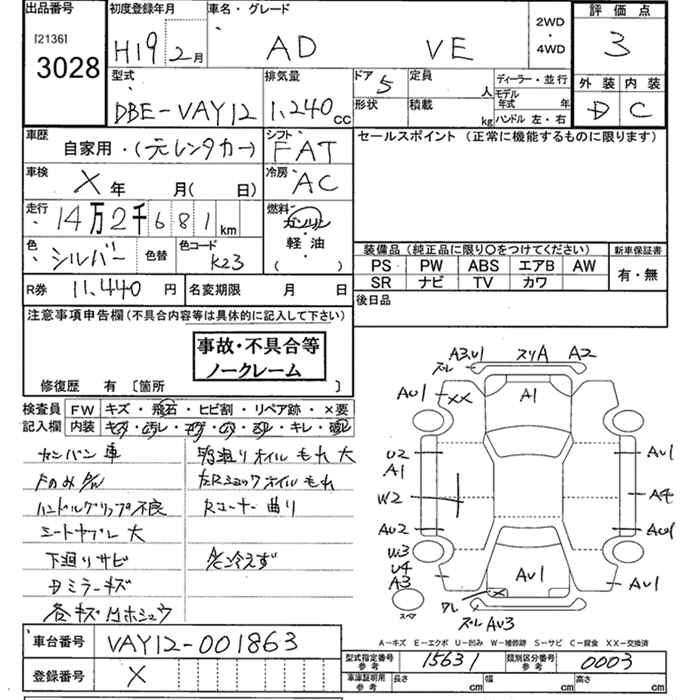 出品番号
[2136]
3028
初度登録年月
H19 2月
車名・グレード
AD VE
2WD
・
4WD
評価点
3
外装 内装
D C
型式
DBE-VAY12
排気量
1,240cc
ドア 5
形状
定員 人
積載 kg
ディーラー・並行
モデル年式 年
ハンドル 左・右
車歴
自家用・(元レンタカー)
シフト
FAT
車検
X 年 月(日)
冷房
AC
走行
14万2千681km
燃料
ガソリン
・
軽油
( )
色
シルバー
色替
色コード
K23
セールスポイント (正常に機能するものに限ります)
装備品(純正品に限り〇をつけてください)
PS PW ABS エアB AW
SR ナビ TV カワ
新車保証書
有・無
後日品
R券 11,440円
名変期限 月 日
注意事項申告欄(不具合内容等は具体的に記入して下さい)
事故・不具合等
ノークレーム
修復歴 有 〔箇所 〕
検査員記入欄
FW キズ・飛石・ヒビ割・リペア跡・×要
内装 キズ・汚レ・コゲ・穴・スレ・キレ・破レ
カンバン車
ハンドルグリップ不良
シートヤブレ 大
下廻りサビ
Dミラーキズ
各キズ凹ホシュウ
駒廻りオイルもれ 大
左Rショックオイルもれ
Rコーナー曲り
A/C冷えず
A3,U1 スリA A2
ズレ
AU1
XX
A1
U2
A1
W2
AU2
W3
U4
A3
AU1
A4
AU1
AU1
AU1
X
ズレ AU3
スペア
A-キズ E-エクボ U-凹み W-補修跡 S-サビ C-腐食 XX-交換済
車台番号 VAY12-001863
登録番号 X
型式指定番号参考 15631
類別区分番号参考 0003
車庫証明用参考 長さ cm 幅 cm 高さ cm